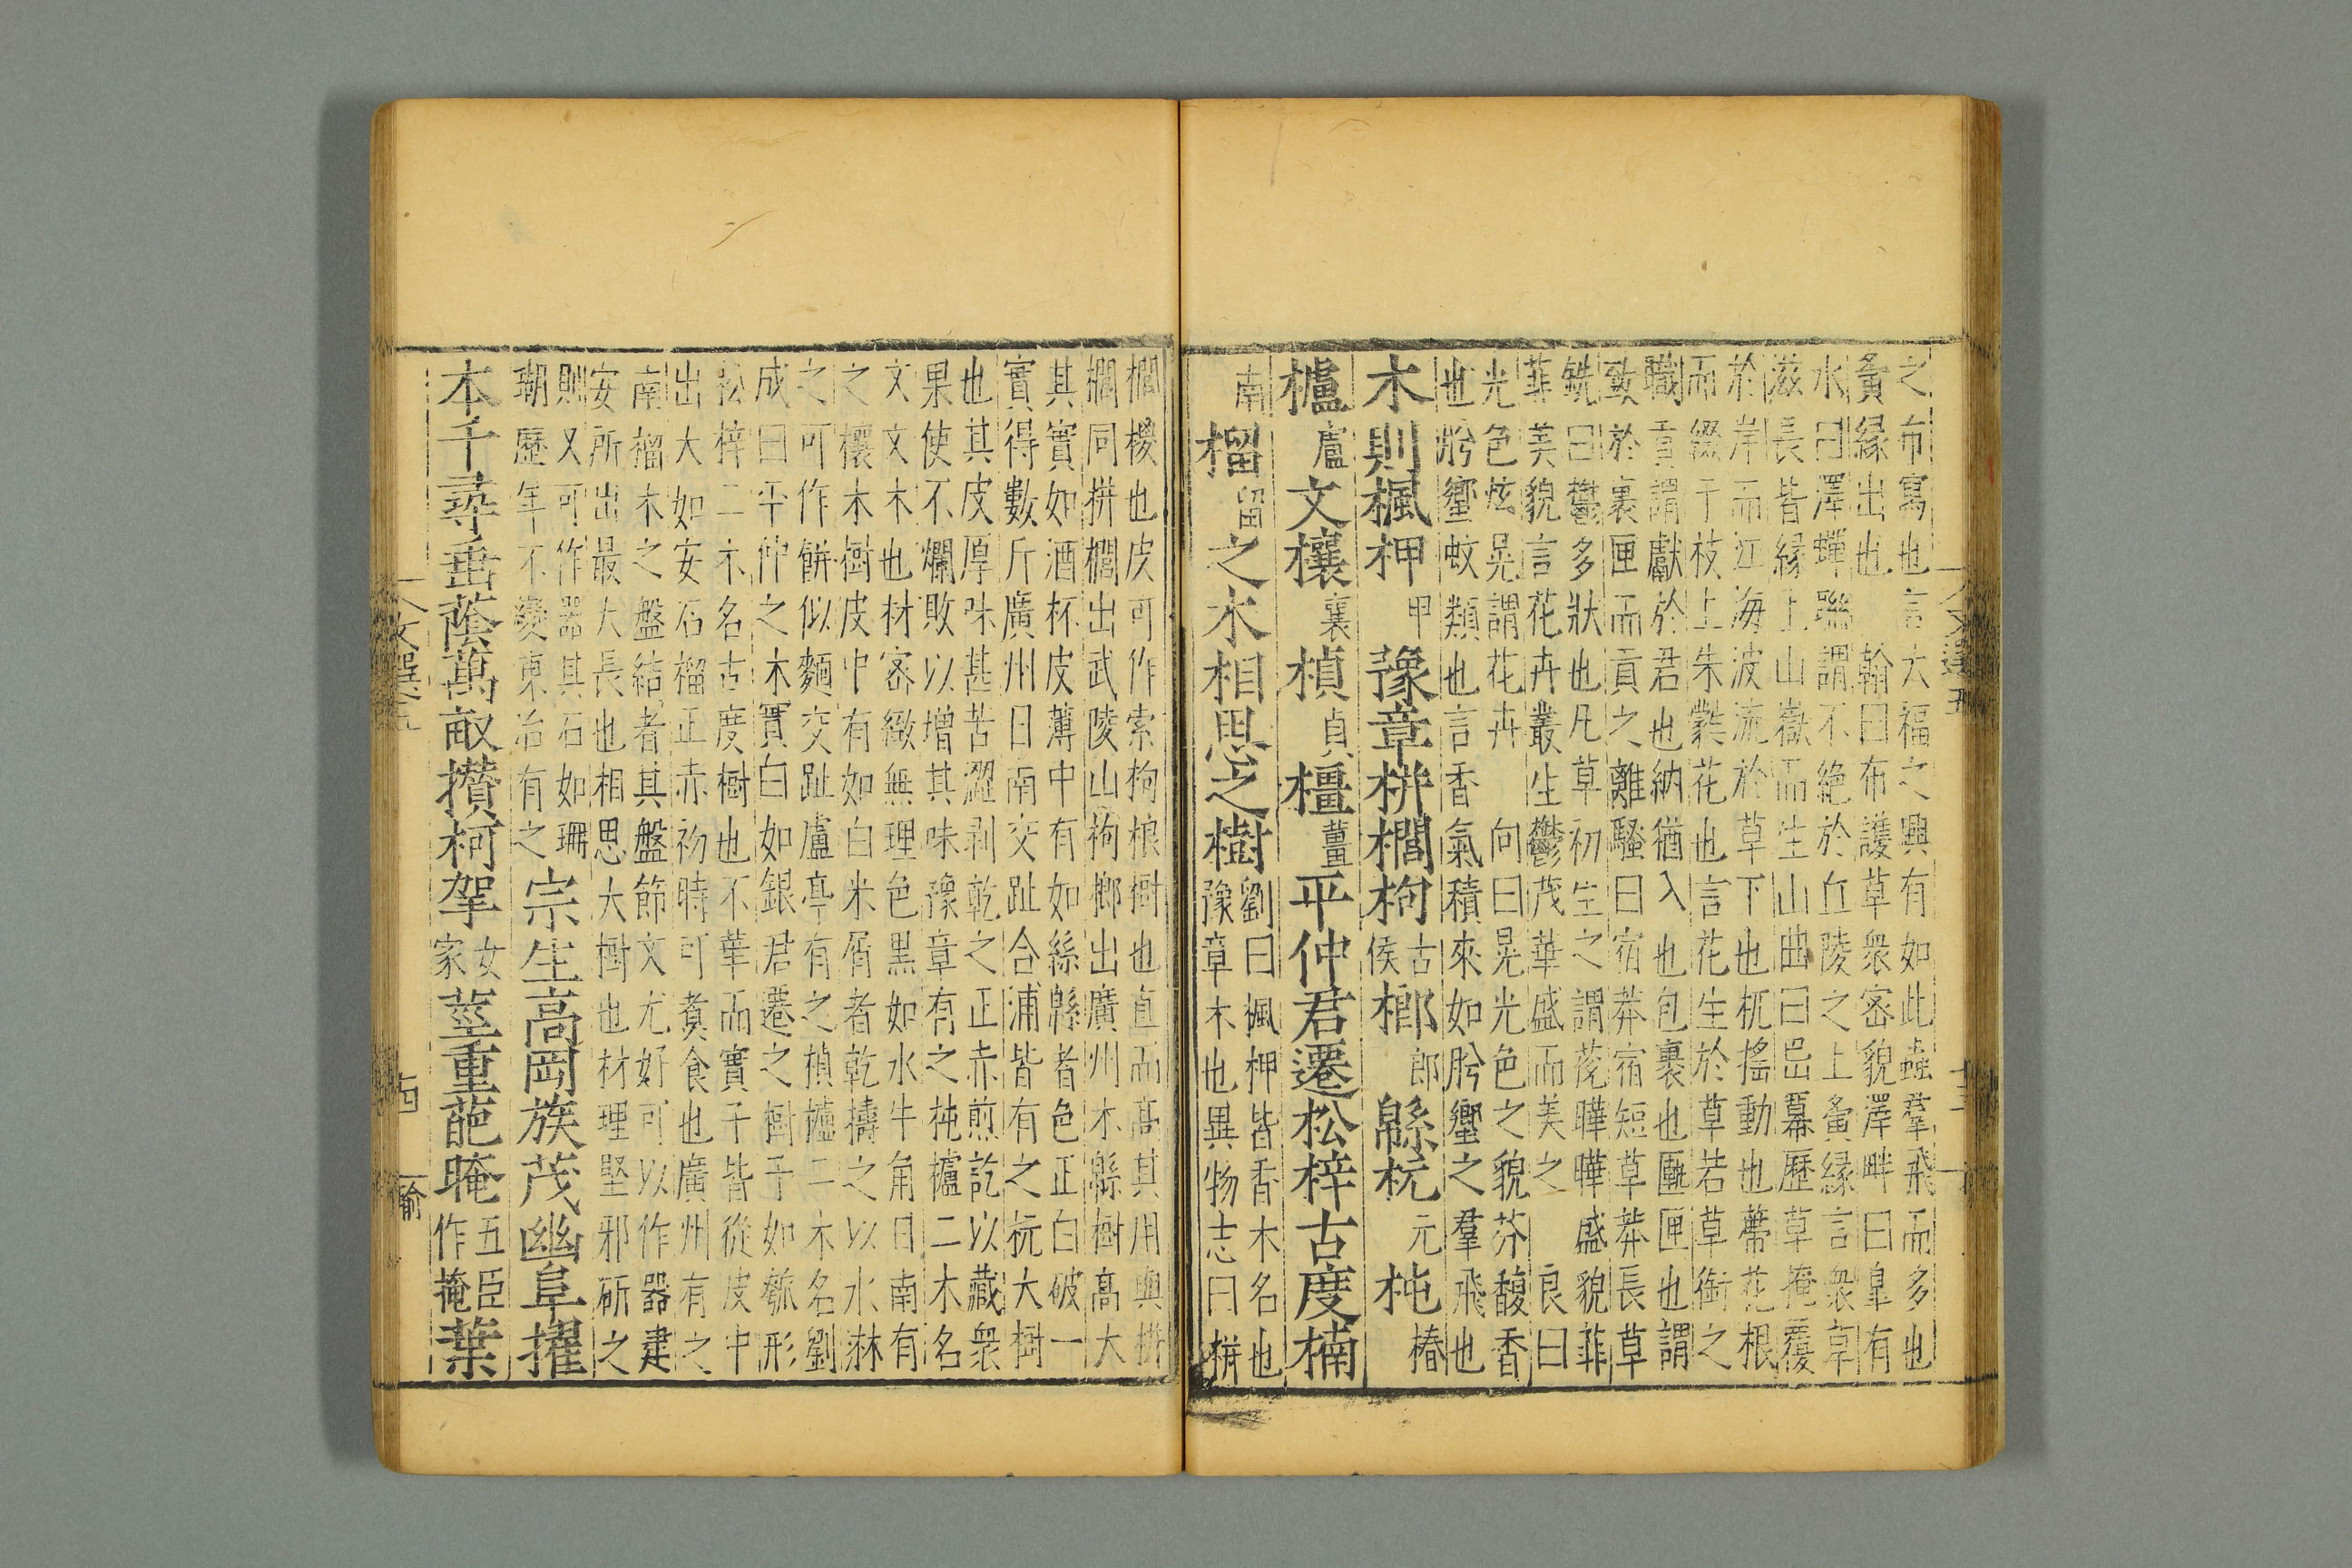 之布寓也言大福之興有如此蟲羣飛而多也
夤緣出也翰曰布護草衆密貌澤畔曰皐有
水曰澤蟬聯謂不絶於丘陵之上夤緣言衆草
滋長皆緣上山嶽而生山曲曰嵒冪歷草掩覆
於岸而江海波流於草下也扤摇動也蔕花根
而綴于枝上朱蘂花也言花生於草若草銜之
職貢謂獻於君也納猶入也包裹也匭匣也謂
致於裏匣而貢之離騷曰宿莽宿短草莽長草
銑曰鬱多狀也凡草初生之謂茷曄曄盛貌菲
菲美貌言花卉叢生鬱茂華盛而美之良曰
光色炫晃謂花卉向曰晃光色之貌芬馥香
也肸蠁蚊類也言香氣積來如肸蠁之羣飛也
木則楓柙甲豫章栟櫚枸古侯榔郎緜杬元杶椿
櫨盧文欀襄楨貞橿薑平仲君遷松梓古度楠
南榴留之木相思之樹劉曰楓柙皆香木名也
豫章木也異物志曰栟
櫚椶也皮可作索枸桹樹也直而高其用與栟
櫚同栟櫚出武陵山枸榔出廣州木緜樹高大
其實如酒杯皮薄中有如絲緜者色正白破一
實得數斤廣州日南交趾合浦皆有之杬大樹
也其皮厚味甚苦澀剥乾之正赤煎訖以藏衆
果使不爛敗以增其味豫章有之杶櫨二木名
文文木也材密緻無理色黑如水牛角日南有
之欀木樹皮中有如白米屑者乾擣之以水淋
之可作餅似麵交趾盧亭有之楨橿二木名劉
成曰平仲之木實白如銀君遷之樹子如瓠形
松梓二木名古度樹也不華而實子皆從皮中
出大如安石榴正赤初時可煑食也廣州有之
南榴木之盤結者其盤節文尤好可以作器建
安所出最大長也相思大樹也材理堅邪斫之
則又可作器其石如珊
瑚歷年不變東冶有之宗生高岡族茂幽阜擢
本千尋垂蔭萬畝攢柯挐女家莖重葩晻五臣作掩葉
文選五
十四